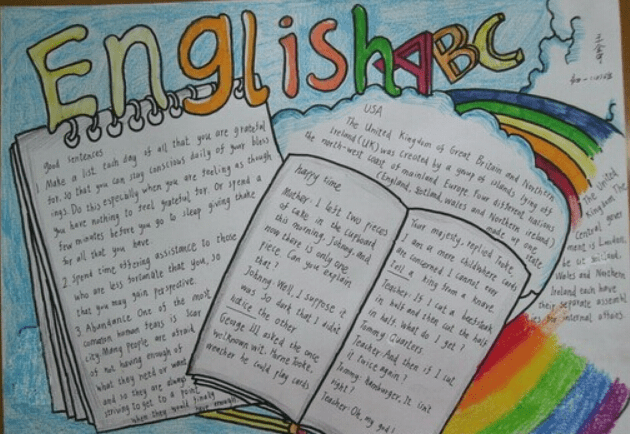 English ABC
good sentences
1. Make a list each day of all that you are grateful
for. so that you can stay conscious daily of your bless
ings. Do this especially when you are feeling as though
you have nothing to feel grateful for. Or spend a
few minutes before you go to sleep giving thanks
for all that you have.
2. Spend time offering assistance to those
who are less fortunate than you, so
that you may gain perspective.
3. Abundance One of the most
common human fears is scar
city. Many people are afraid
of not having enough of
what they need or want
and so they are always
striving to get to a point
when they would finally
have enough
USA
The United Kingdom of Great Britain and Northern
Ireland (UK) was created by a group of islands lying off
the north-west coast of mainland Europe. Four different nations
(England, Scotland, wales and Northern Ireland)
made up one
state
The United
Kingdom The
Central gover
ment is London,
but
Wales and Northern
Ireland each have
their separate assembl
ies for internal affairs.
happy time
Mother: I left two pieces
of cake in the cupboard
this morning, Johnny, and
now there is only one
piece. Can you explain
that?
Johnny: Well, I suppose it
was so dark that I didn't
notice the other
George III, asked the once
well known wit. Horne Tooke,
weather he could play cards
Your majesty, replied Tooke,
I am a mere child where cards
are concerned I cannot even
tell a king from a knave
Teacher: If I cut a beefsteak
in half and then cut the half
in half. What do I get?
Tommy: Quarters.
Teacher: And then if I cut
it twice again?
Tommy: Hamburger. It isn't
right?
Teacher: Oh, my god!